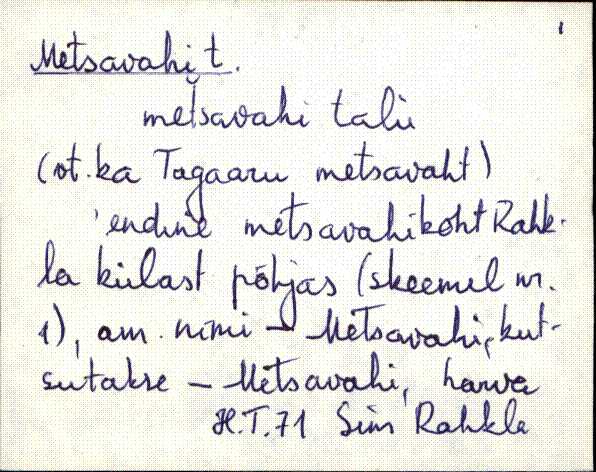 1
Metsavahi t.
metsavahi talu
(vt. ka Tagaaru metsavaht)
'endine metsavahikoht Rahk-
la külast põhjas (skeemil nr.
1), am. nimi – Metsavahi, kut-
sutakse – Metsavahi, harva
H.T. 71 Sim Rahkla